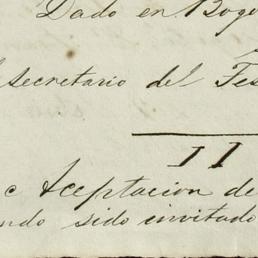 Dado en Bogo
secretario del Tes
II
Aceptacion de
ndo sido invitado